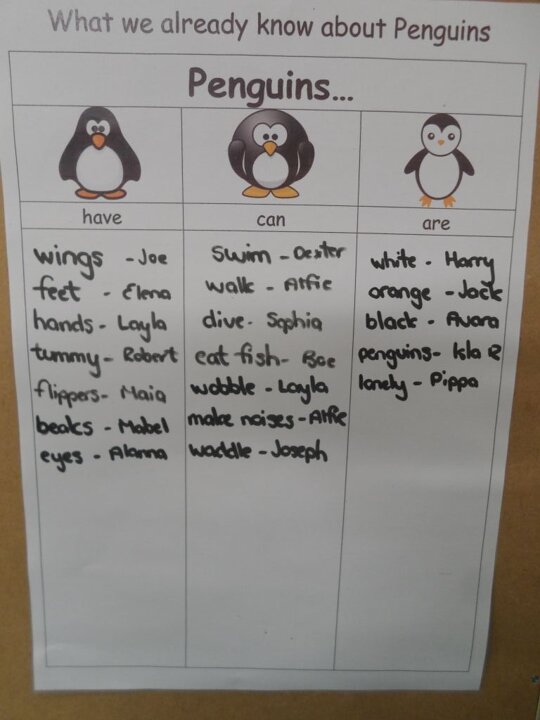 What we already know about Penguins
Penguins...
have
can
are
wings - Joe
feet - Elena
hands - Layla
tummy - Robert
flippers - Maia
beaks - Mabel
eyes - Alanna
swim - Dexter
walk - Alfie
dive - Sophia
eat fish - Boe
wobble - Layla
make noises - Alfie
waddle - Joseph
white - Harry
orange - Jack
black - Avara
penguins - Isla R
lonely - Pippa